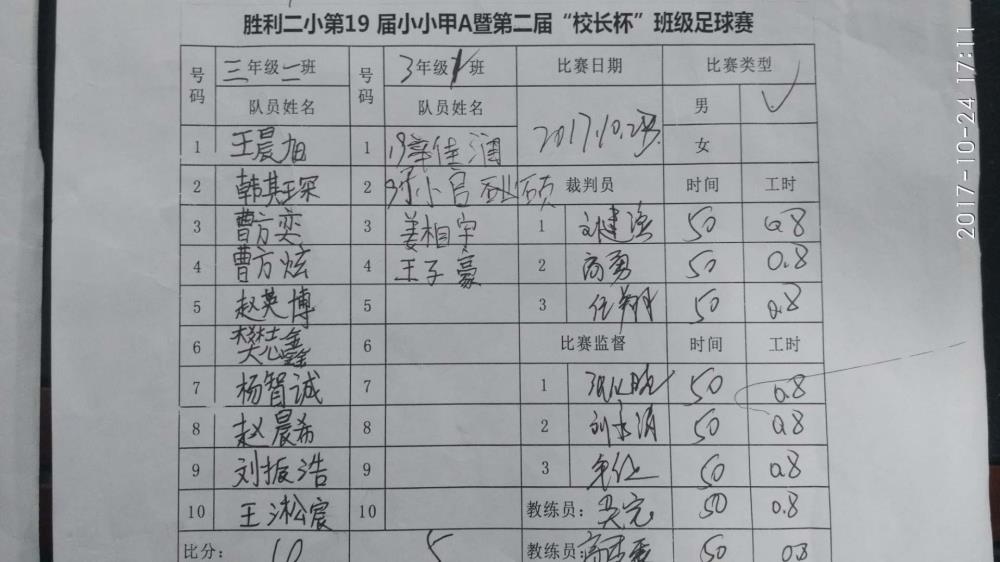 胜利二小第19 届小小甲A暨第二届“校长杯”班级足球赛
号码 三年级二班 号码 3年级1班 比赛日期 比赛类型
队员姓名 队员姓名 2017.10.23 男 ✓
1 王晨旭 1 佳润 女
2 韩其琛 2 裁判员 时间 工时
3 曹方奕 3 姜相宇 1 刘建 50 0.8
4 曹方炫 4 王子豪 2 高勇 50 0.8
5 赵英博 5 3 任翔 50 0.8
6 樊志鑫 6 比赛监督 时间 工时
7 杨智诚 7 1 50 0.8
8 赵晨希 8 2 50 0.8
9 刘振浩 9 3 50 0.8
10 王淞宸 10 教练员: 50 0.8
比分: 10 5 教练员: 50 0.8
2017-10-24 17:11